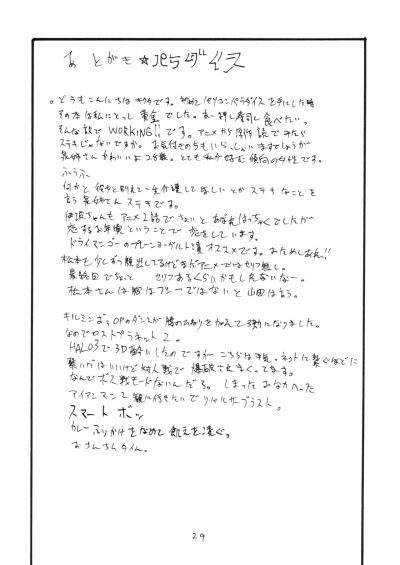 あとがき☆パラダイス
。どうもこんにちは 初めてパソコンパラダイスを手にした時
その本は私にとって黄金でした。あ、押し寿司に食べたい。
そんな訳でWORKING!!です。アニメから原作読できたら
ステキじゃないですか。お気付きの方もいらっしゃいますでしょうが
泉姉さんかわいいよ28歳。とても私が好む傾向の女性です。
ふうふ
何かと 彼女と別れて一生介護してほしいとか ステキなことを
言う泉姉さん ステキです。
伊波ちゃんもアニメ2話でちょいとあばれはっちゃくでしたが
恋するお年頃ということで 恋をしています。
ドライマンゴーのプレーンヨーグルト漬オススメです。おためしあれ!!
松本も少しずつ顔出してるけどまだアニメではセリフ無し。
最終回でちょこっと セリフあるくらいかもしれないなー。
松本さんは胸はフツーではないと山田は言う。
キルミンずぅOPのダンスが 勝のおねりを加えて3割になりました。
なのでロストプラネット2。
HALO3で3D酔いしたのですが こちらは平気。ネットに繋ぐほどに
繋いだはいいけど対人戦で 爆破されまくってます。
なんでボス戦モードないんだろ。しまったおなかへった
アイアンマン2観に行きたいでリパルサーブラスト。
スマート ボッ
カレーふりかけをなめて飢えを凌ぐ。
おさんさんタイム。
29